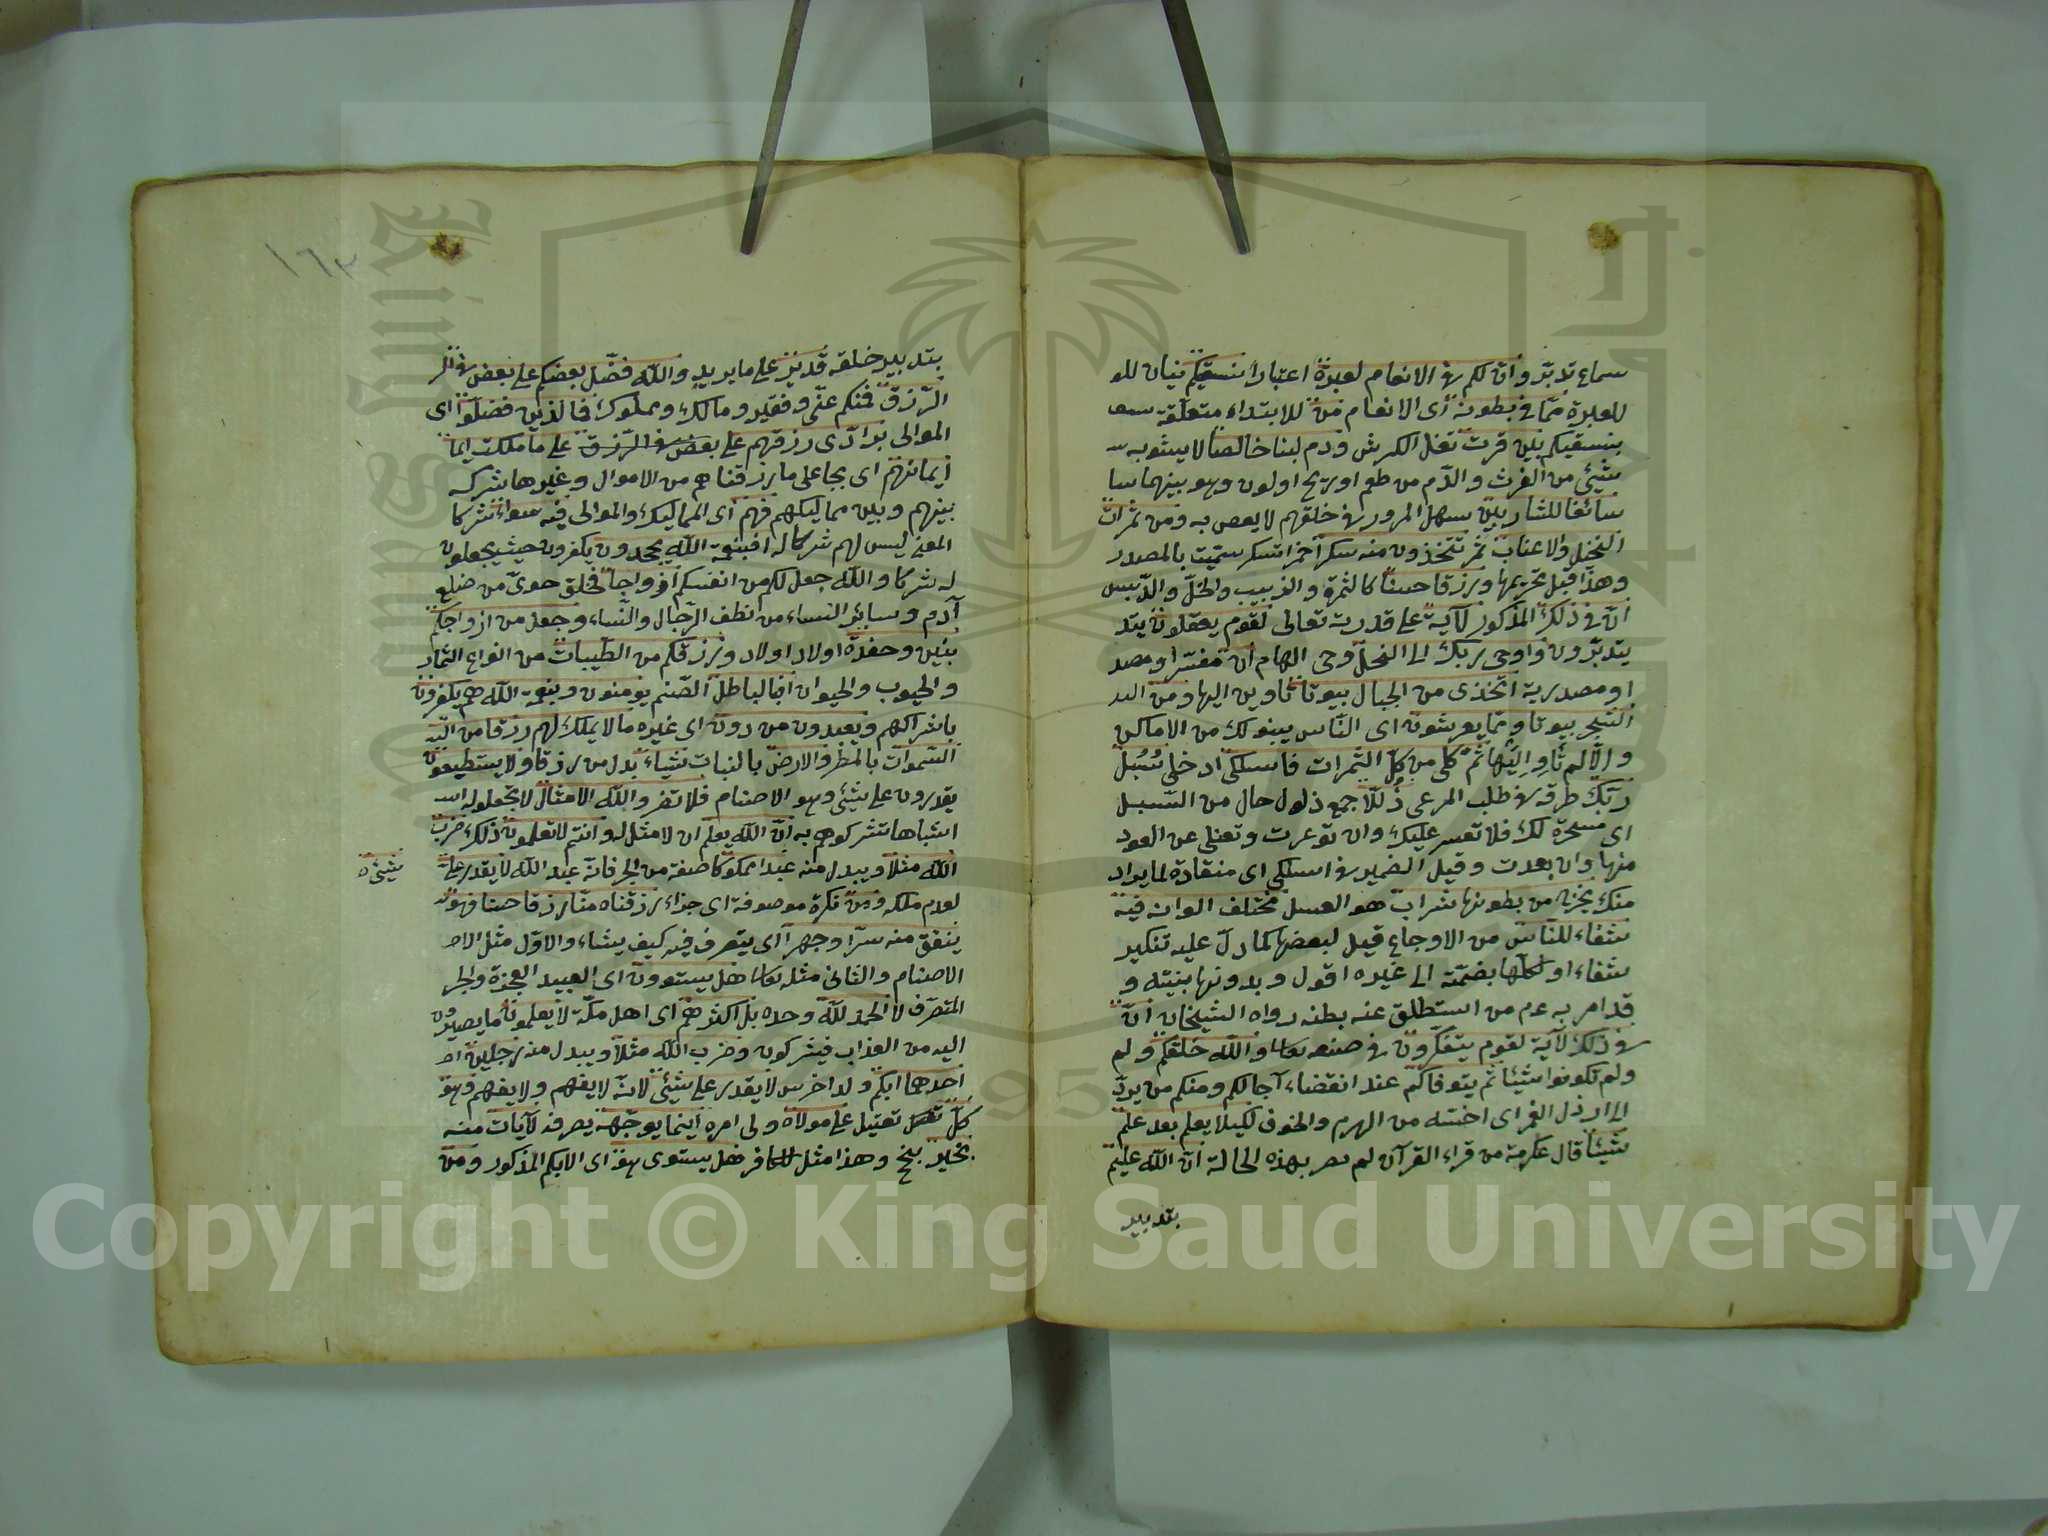 سماع تدبّر وان لكم في الانعام لعبرة اعتبارا نسقيكم بيان للو
للعبرة ممّا في بطونه اى الانعام من للابتداء متعلقة سعـ
بنسقيكم بين فرث ثفل الكرش ودم لبنا خالصا لا يشوبه
شيئ من الفرث والدّم من طعم او ريح او لون وهو بينهما سا
سائغا للشاربين سهل المرور في حلقهم لا يغص به ومن ثمرات
النخيل والاعناب ثمر تتخذون منه سكرا خمرا تسكر سمّيت بالمصدر
وهذا قبل تحريمها ورزقا حسنا كالثمرة والزبيب والخلّ والدّبس
انّ في ذلك المذكور لآية على قدرته تعالى لقوم يعقلون يتد
يتدبّرون واوحى ربك الى النحل وحى الهام أن مفسّرا ومصد
او مصدرية اتخذى من الجبال بيوتا تاوين اليها ومن الد
الشجر بيوتا وممّا يعرشون اى النّاس يبنو لك من الاماكن
والّا لم تأو اليها ثمّ كلى من كلّ الثمرات فاسلكى ادخلى سبل
ربّك طرقه في طلب المرعى ذللا جمع ذلول حال من السّبيل
اى مسخرة لك فلا تعسر عليك وان توعرت وتضلى عن العود
منها وان بعدت وقيل الضمير في اسلكى اى منقادة لما يراد
منك يخرج من بطونها شراب هو العسل مختلف الوانه فيه
شفاء للنّاس من الاوجاع قيل لبعضها كما دلّ عليه تنكير
شفاء او لكلها بضمّته الى غيره اقول وبدونها بنيته و
قد امر به عم من استطلق عنه بطنه رواه الشيخان انّ
في ذلك لآية لقوم يتفكّرون في صنعه تعالى والله خلقكم ولم
ولم تكونوا شيئا ثم يتوفاكم عند انقضاء آجالكم ومنكم من يردّ
الى ارذل العمر اى اخسّه من الهرم والخرف لكيلا يعلم بعد علم
شيئا قال عكرمة من قراء القرآن لم يصر بهذه الحالة انّ الله عليم
بتدبير
١٦٣
بتدبير خلقه قدير على ما يريد والله فضّل بعضكم على بعض في الر
الرّزق فمنكم غنّى وفقير ومالك ومملوك فما الذين فضلوا اى
الموالى برادّى رزقهم على بعض في الرّزق على ما ملكت ايما
ايمانهم اى بجاعلى ما رزقناهم من الاموال وغيرها شركه
بينهم وبين مماليكهم فهم اى المماليك والموالى فيه سواء شركا
المعنى ليس لهم شركا له افبنعمة الله يجحدون يكفرون حيث يجعلون
له شركا والله جعل لكم من انفسكم ازواجا فخلق حوىّ من ضلع
آدم وسائر النساء من نطف الرّجال والنّساء وجعل من ازواجكم
بنين وحفدة اولاد اولاد ورزقكم من الطّيبات من انواع الثمار
والحبوب والحيوان افبالباطل الصّنم يؤمنون وبنعمة الله هم يكفرون
باشراكهم ويعبدون من دون اى غيره ما لا يملك لهم رزقا من السّ
السّموات بالمطر والارض بالنبات شياء بدل من رزقا ولا يستطيعون
يقدرون على شيئ وهو الاصنام فلا تضر والله الامثال لا تجعلو له اسـ
اشباها تشركوهم به انّ الله يعلم ان لا مثل له وانتم لا تعلمون ذلك ضرب
الله مثلا ويبدل منه عبدا مملوكا صفة من الحر فانّه عبد الله لا يقدر على
شيئ ه
لعدم ملكه ومن نكرة موصوفة اى حراء رزقناه منّا رزقا حسنا فهو
ينفق منه سرّا وجهرا اى يتصرف فيه كيف يشاء والاوّل مثل الاصـ
الاصنام والثانى مثله تعالى هل يستوون اى العبيد العجزة والحر
المتصرّف لا الحمد للّه وحده بل اكثرهم اى اهل مكّة لا يعلمون ما يصيرون
اليه من العذاب فيشركون وضرب الله مثلا ويبدل منه رجلين احـ
احدهما ابكم ولد اخرس لا يقدر على شيئ لانّه لا يفهم ولا يفهم فهو
كلّ ثقيل على مولاه ولى امره اينما يوجّهه يصرفه لا يأت منه
بخير ينجح وهذا مثل الكافر هل يستوى هو اى الابكم المذكور ومن
Copyright © King Saud University